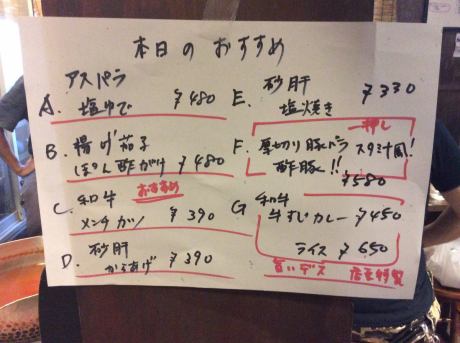 本日のおすすめ
A. アスパラ
塩ゆで ¥480
B. 揚げ茄子
ぽん酢がけ ¥480
おすすめ
C. 和牛
メンチカツ ¥390
D. 砂肝
からあげ ¥390
E. 砂肝 ¥330
塩焼き
一押し
F. 厚切り豚バラ スタミナ風!
酢豚!!
¥580
G 和牛
牛すじカレー ¥450
ライス ¥650
旨いデス 店主特製